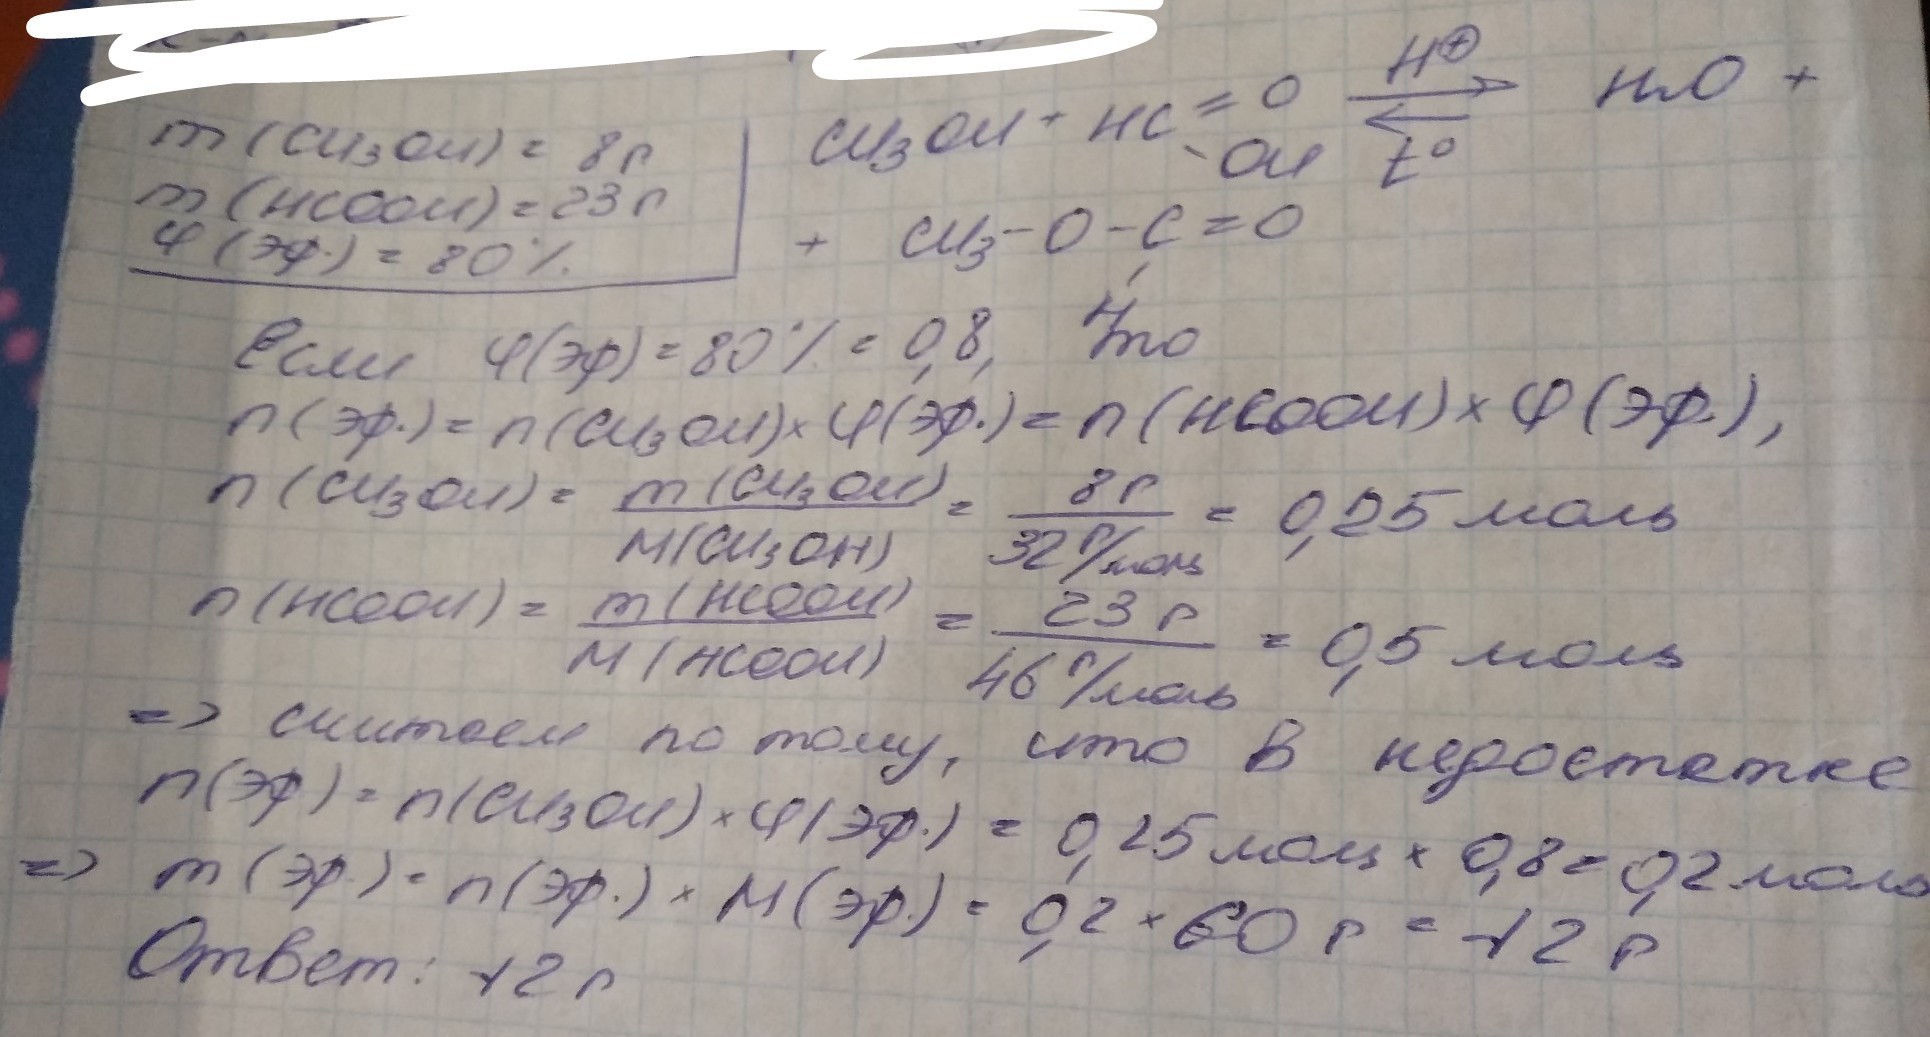 m(CH3OH) = 8г
m(HCOOH) = 23г
φ(эф.) = 80%
CH3OH + HC =O -OH ⇄ H⊕ t° H2O +
+ CH3-O-C=O
H
Если φ(эф) = 80% = 0,8, то
n(эф.) = n(CH3OH) × φ(эф.) = n(HCOOH) × φ(эф.),
n(CH3OH) = m(CH3OH) / M(CH3OH) = 8г / 32 г/моль = 0,25 моль
n(HCOOH) = m(HCOOH) / M(HCOOH) = 23 г / 46 г/моль = 0,5 моль
=> считаем по тому, что в недостатке
n(эф) = n(CH3OH) × φ(эф.) = 0,25 моль × 0,8 = 0,2 моль
=> m(эф.) = n(эф.) × M(эф.) = 0,2 × 60 г = 12 г
Ответ: 12 г